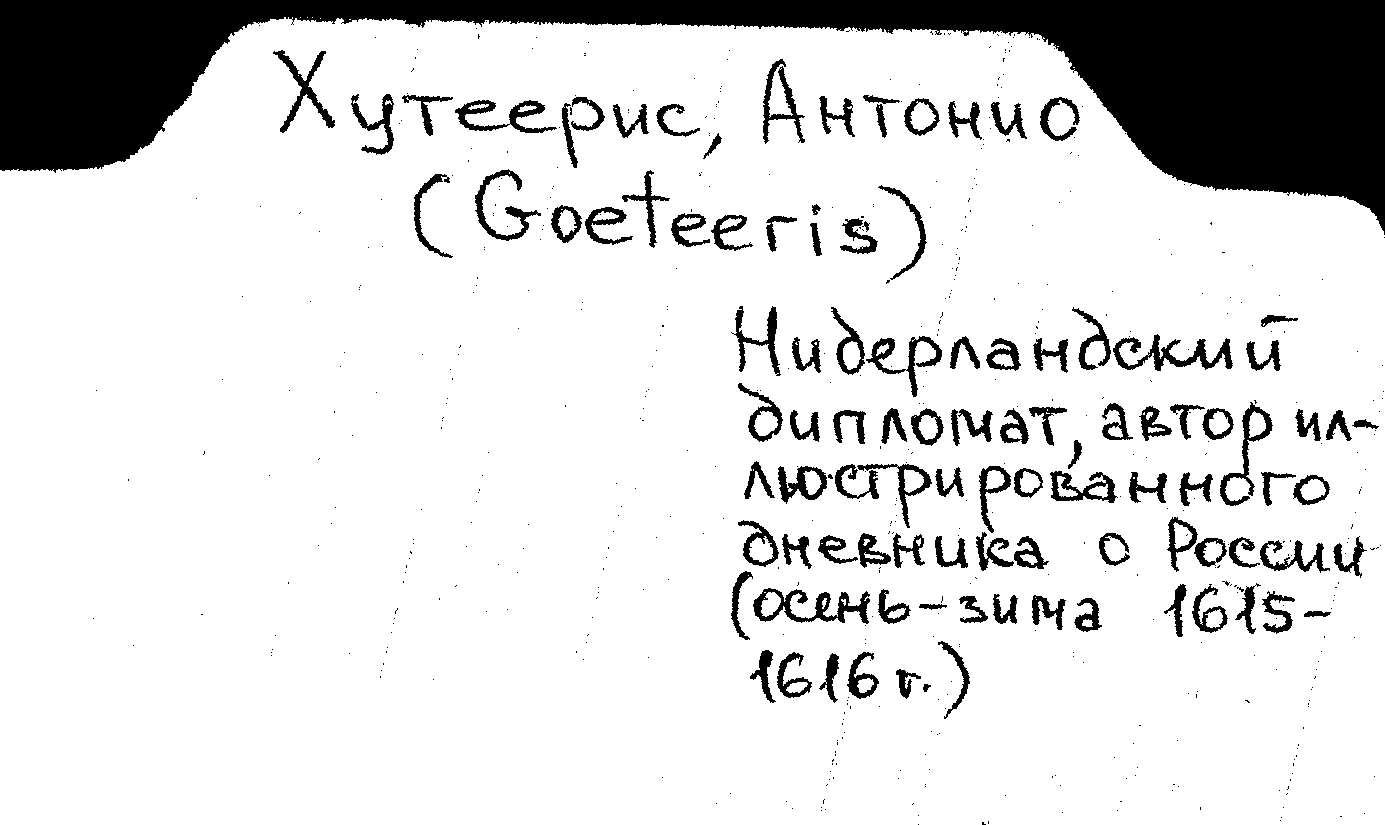 Хутеерис, Антонио
(Goeteeris)
Нидерландский
дипломат, автор ил-
люстрированного
дневника о России
(осень-зима 1615-
1616 г.)